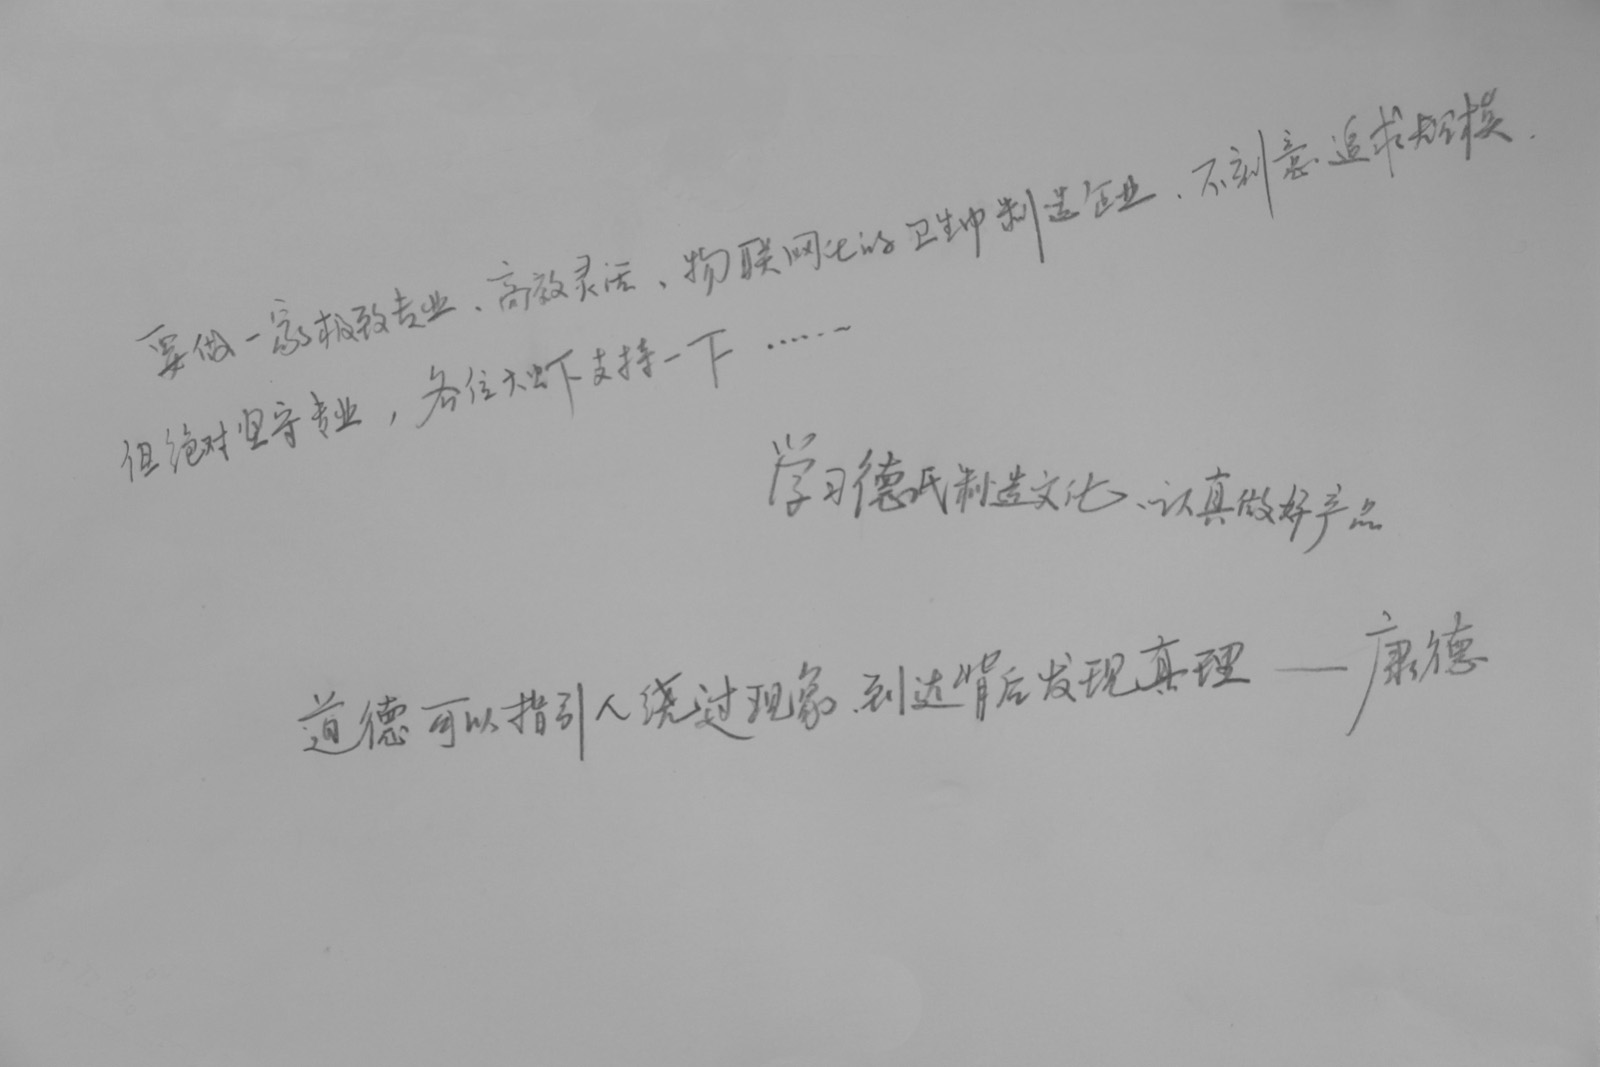 要做一家极致专业、高效灵活、物联网化的卫生巾制造企业、不刻意追求规模.
但绝对坚守专业，各位大虾支持一下……~
学习德氏制造文化、认真做好产品
道德可以指引人绕过现象、到达背后发现真理——康德